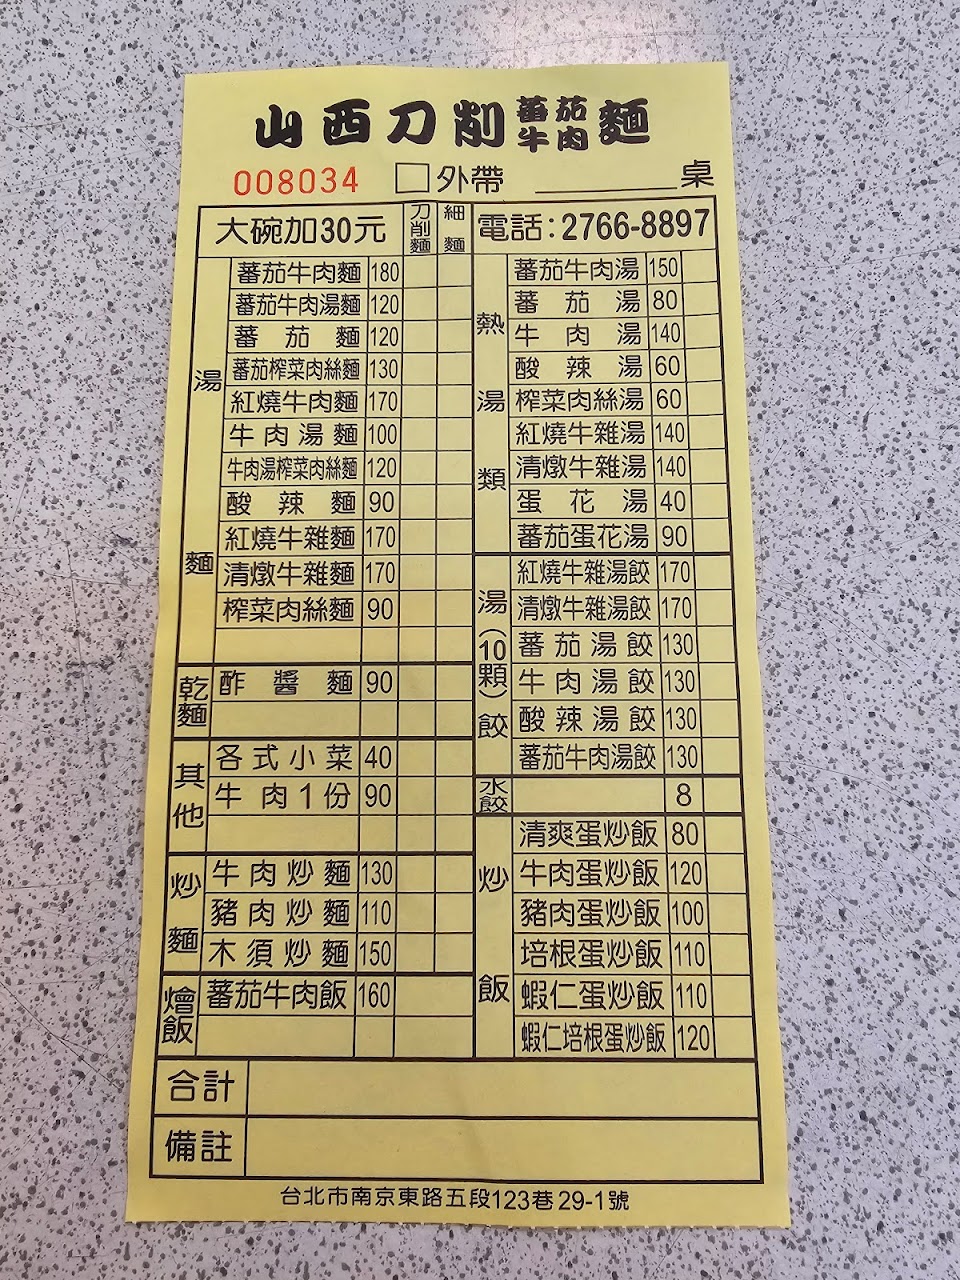 山西刀削蕃茄牛肉麵
008034 □外帶 ______桌
大碗加30元 刀削麵 細麵
湯麵
蕃茄牛肉麵 180
蕃茄牛肉湯麵 120
蕃茄麵 120
蕃茄榨菜肉絲麵 130
紅燒牛肉麵 170
牛肉湯麵 100
牛肉湯榨菜肉絲麵 120
酸辣麵 90
紅燒牛雜麵 170
清燉牛雜麵 170
榨菜肉絲麵 90
乾麵
酢醬麵 90
其他
各式小菜 40
牛肉1份 90
炒麵
牛肉炒麵 130
豬肉炒麵 110
木須炒麵 150
燴飯
蕃茄牛肉飯 160
電話:2766-8897
熱湯類
蕃茄牛肉湯 150
蕃茄湯 80
牛肉湯 140
酸辣湯 60
榨菜肉絲湯 60
紅燒牛雜湯 140
清燉牛雜湯 140
蛋花湯 40
蕃茄蛋花湯 90
湯(10顆)餃
紅燒牛雜湯餃 170
清燉牛雜湯餃 170
蕃茄湯餃 130
牛肉湯餃 130
酸辣湯餃 130
蕃茄牛肉湯餃 130
水餃 8
炒飯
清爽蛋炒飯 80
牛肉蛋炒飯 120
豬肉蛋炒飯 100
培根蛋炒飯 110
蝦仁蛋炒飯 110
蝦仁培根蛋炒飯 120
合計
備註
台北市南京東路五段123巷29-1號